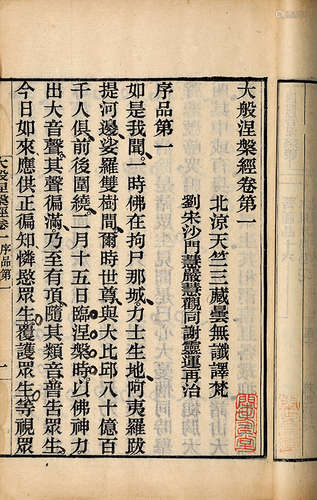 大般涅槃經卷第一
北涼天竺三藏曇無讖譯梵
劉宋沙門慧嚴慧觀同謝靈運再治
序品第一
如是我聞一時佛在拘尸那城力士生地阿夷羅跋
提河邊娑羅雙樹間爾時世尊與大比邱八十億百
千人俱前後圍繞二月十五日臨涅槃時以佛神力
出大音聲其聲徧滿乃至有頂隨其類音普告眾生
今日如來應供正徧知憐愍眾生覆護眾生等視眾
大般涅槃經卷一 序品第一
一